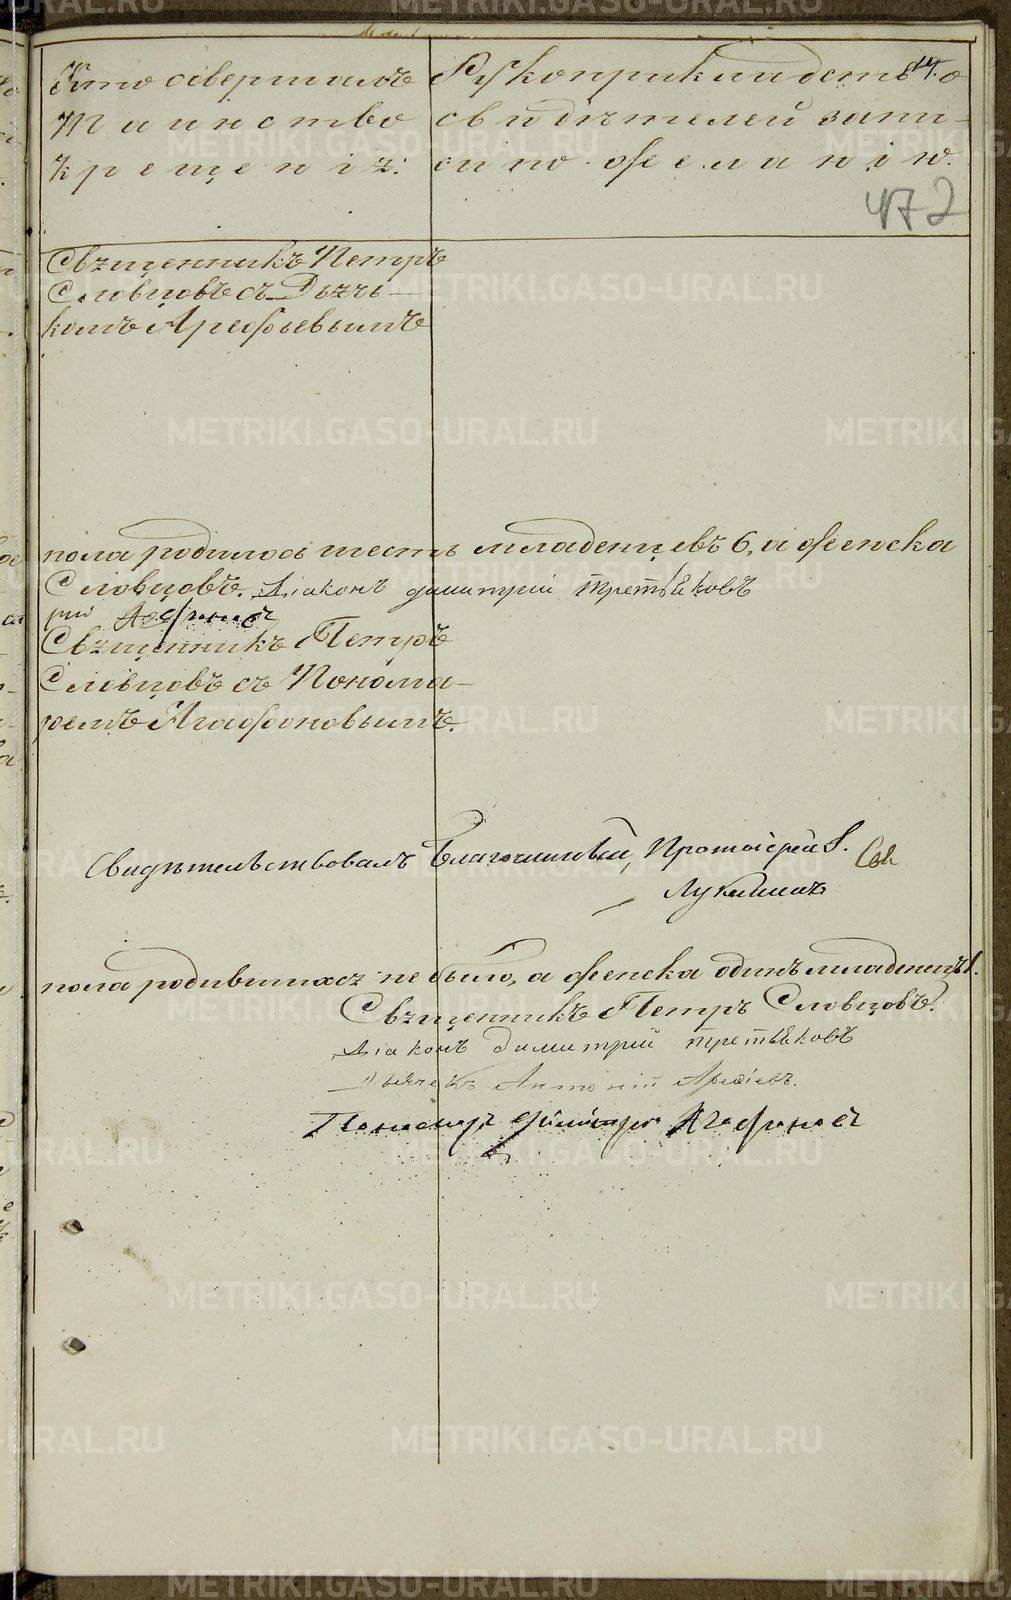 Кто совершалъ
Таинство
крещенія:
Рукоприкладство
свидѣтелей запи-
си по желанію.
14.
472
Священникъ Петръ
Словцовъ съ Дьячь-
комъ Арефьевымъ
пола родилось шесть младенцевъ 6, а женска
Словцовъ. Діаконъ Димитрій Третьяковъ
Священникъ Петръ
Словцовъ съ Понома-
ремъ Агафоновымъ.
Свидѣтельствовалъ Благочинный, Протоіерей І.
Лукинъ
пола родившихся не было, а женска одинъ младенецъ 1.
Священникъ Петръ Словцовъ.
Діаконъ Димитрій Третьяковъ
Дьячекъ Антоній Арефіевъ.
Пономарь Димитрій Агафоновъ
METRIKI.GASO-URAL.RU